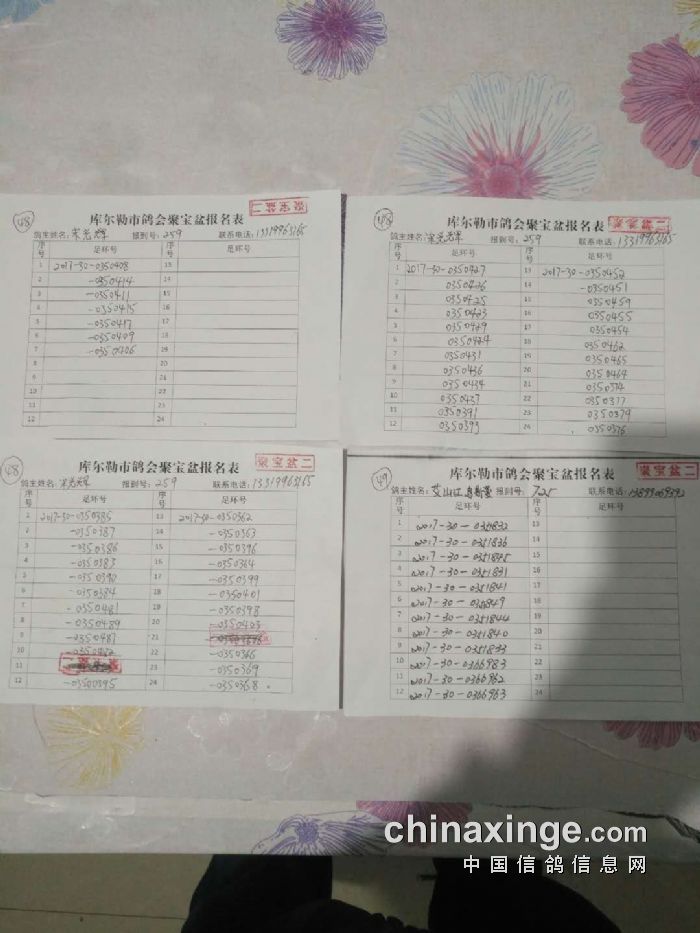 48
库尔勒市鸽会聚宝盆报名表
聚宝盆二
鸽主姓名: 宋光辉 报到号: 259 联系电话: 13319963165
序号 足环号 序号 足环号
1 2017-30-0350408 13
2 -0350414 14
3 -0350411 15
4 -0350415 16
5 -0350417 17
6 -0350409 18
7 -0350406 19
8 20
9 21
10 22
11 23
12 24
48
库尔勒市鸽会聚宝盆报名表
聚宝盆二
鸽主姓名: 宋光辉 报到号: 259 联系电话: 13319963165
序号 足环号 序号 足环号
1 2017-30-0350427 13 2017-30-0350452
2 0350426 14 -0350451
3 0350425 15 0350459
4 0350423 16 0350455
5 0350429 17 0350454
6 0350424 18 0350462
7 0350431 19 0350465
8 0350436 20 0350464
9 0350434 21 0350374
10 0350437 22 0350377
11 0350391 23 0350379
12 0350393 24 0350376
48
库尔勒市鸽会聚宝盆报名表
聚宝盆二
鸽主姓名: 宋光辉 报到号: 259 联系电话: 13319963165
序号 足环号 序号 足环号
1 2017-30-0350385 13 2017-30-0350362
2 -0350387 14 -0350363
3 -0350386 15 -0350396
4 -0350383 16 -0350364
5 -0350390 17 -0350399
6 -0350384 18 -0350401
7 -0350481 19 -0350398
8 -0350489 20 -0350403
9 -0350487 21
10 -0350482 22 -0350366
11 23 -0350369
12 -0350395 24 -0350368
49
库尔勒市鸽会聚宝盆报名表
聚宝盆二
鸽主姓名: 艾山江 报到号: 725 联系电话:
序号 足环号 序号 足环号
1 2017-30-0351832 13
2 2017-30-0351836 14
3 2017-30-0351845 15
4 2017-30-0351831 16
5 2017-30-0351841 17
6 2017-30-0351849 18
7 2017-30-0351844 19
8 2017-30-0351840 20
9 2017-30-0351833 21
10 2017-30-0366983 22
11 2017-30-0366962 23
12 2017-30-0366963 24
chinaxinge.com
中国信鸽信息网